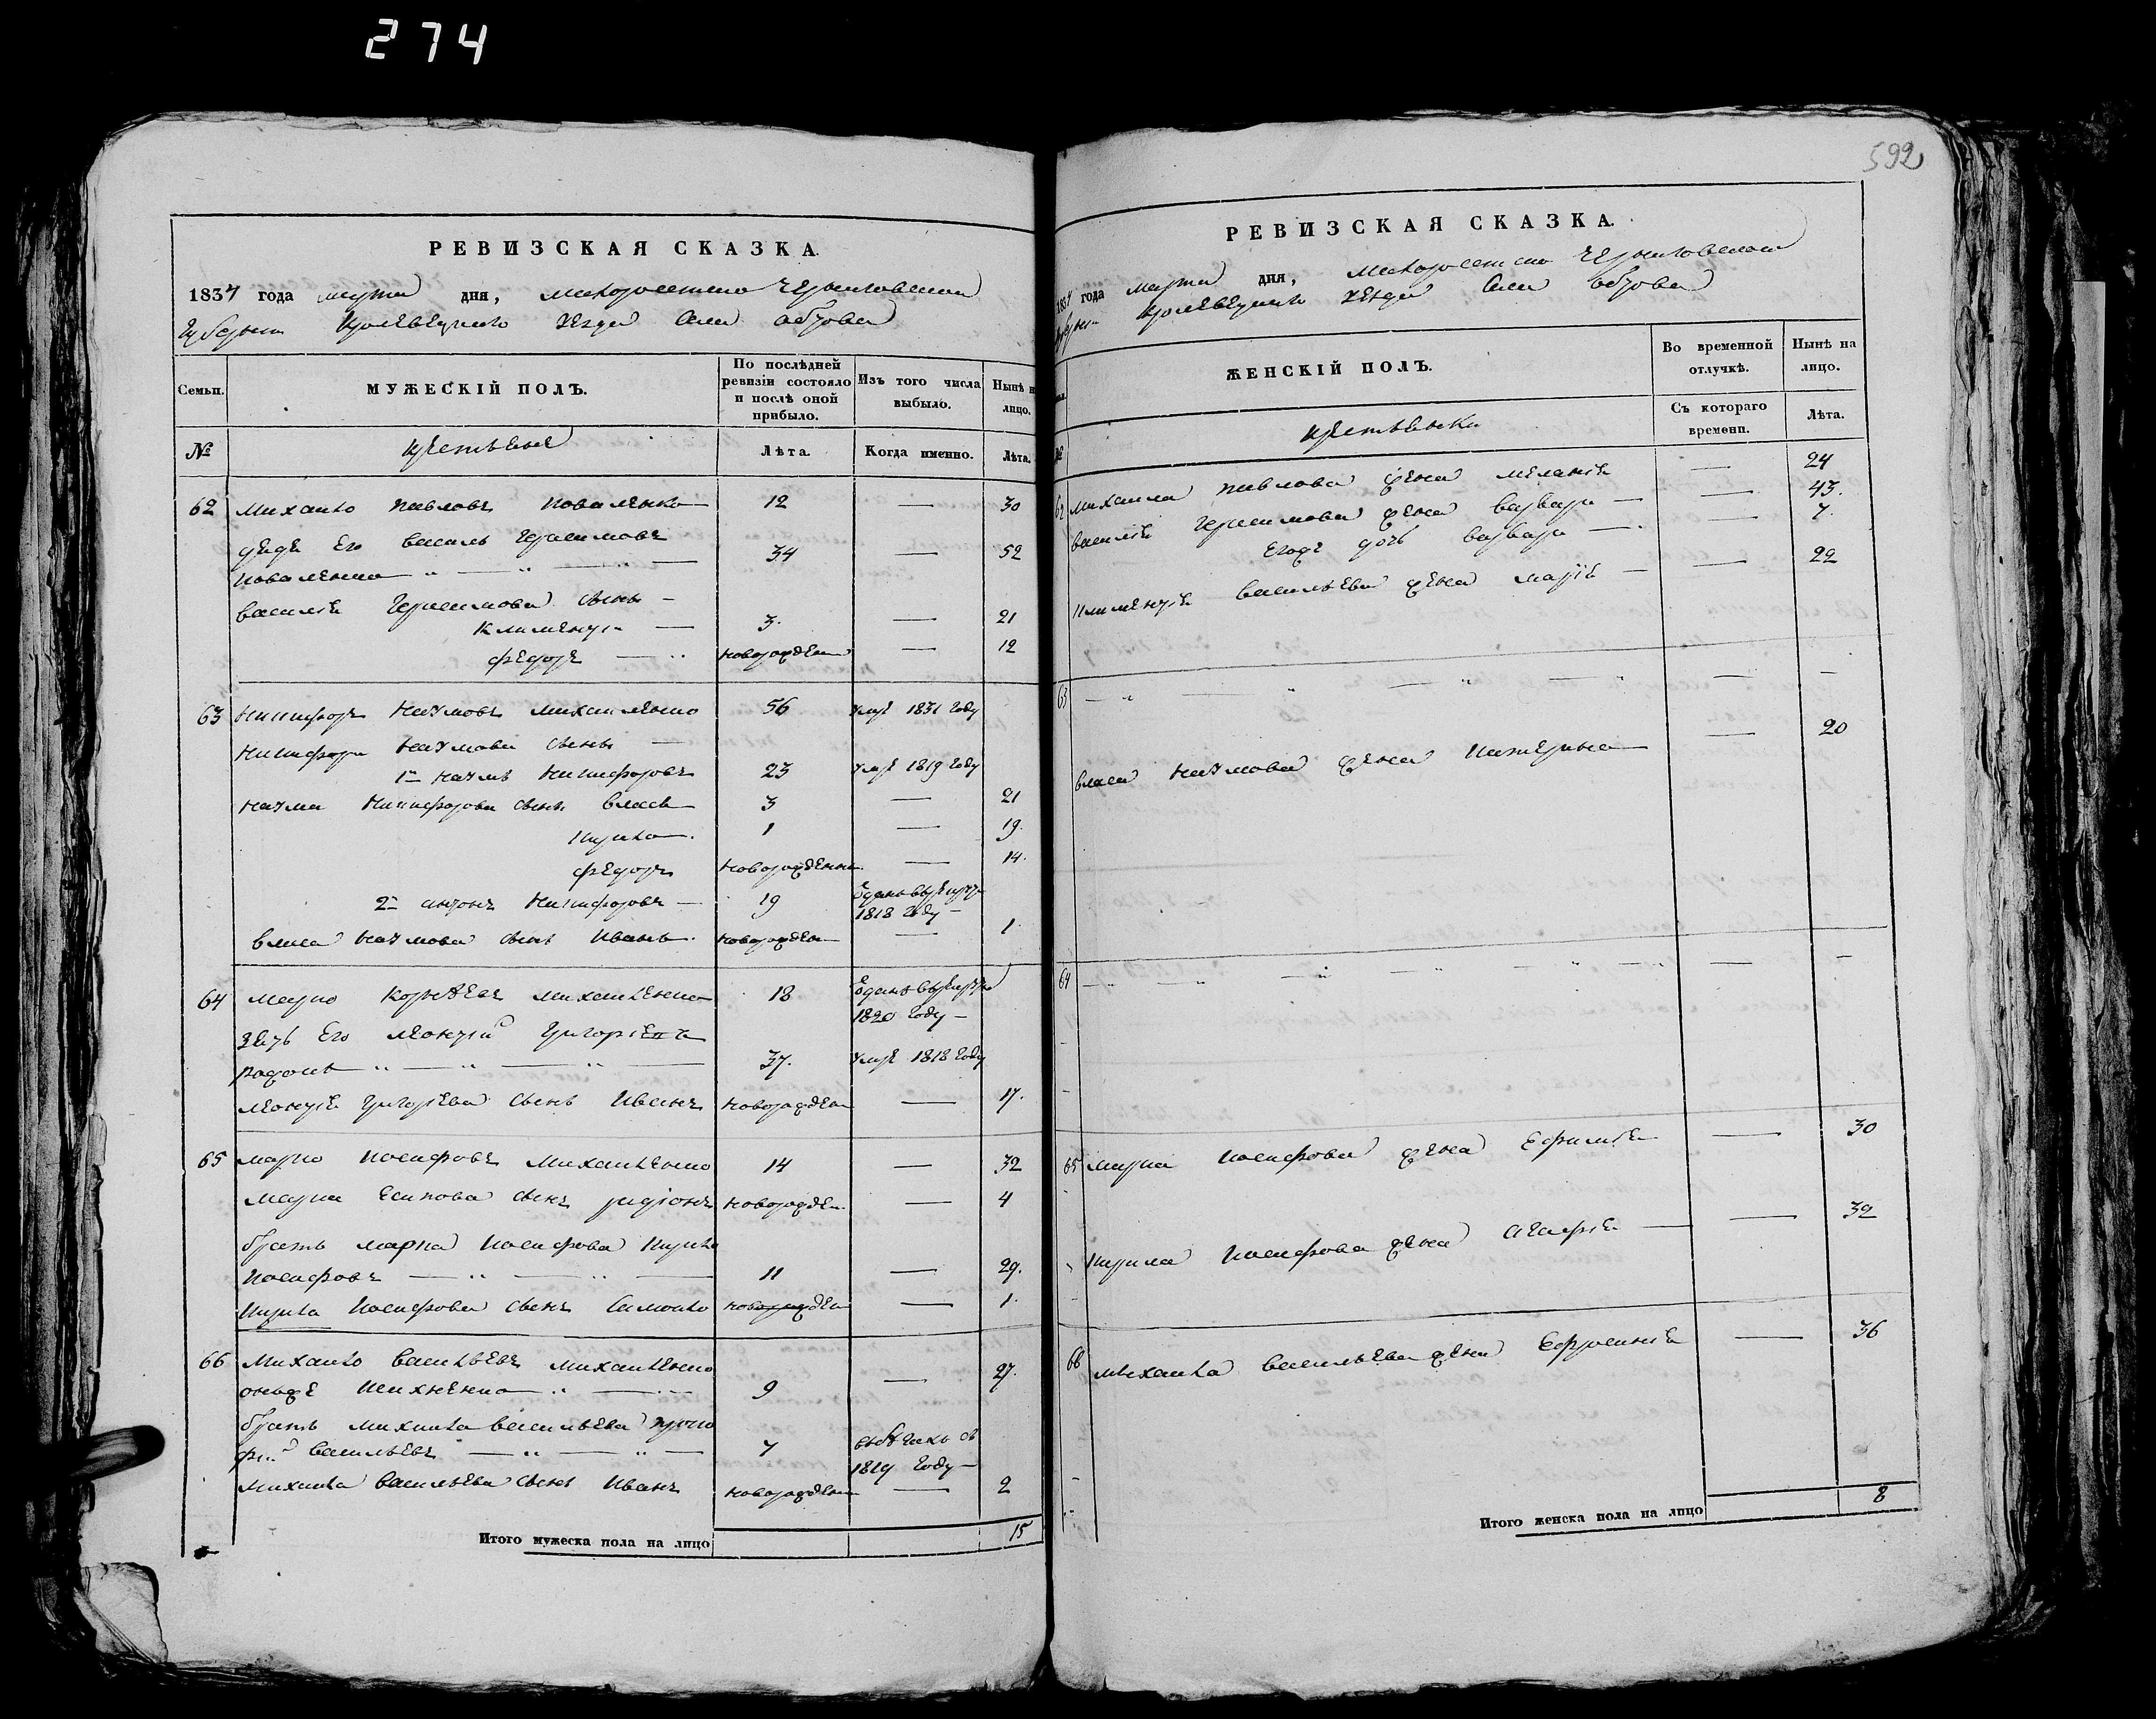 274
592
РЕВИЗСКАЯ СКАЗКА.
1834 года марта дня, Малороссийско Черниговской
Губернии Кролевецкого уезда села
Семьи.
МУЖЕСКІЙ ПОЛЪ.
По послѣдней ревизіи состояло и послѣ оной прибыло.
Изъ того числа выбыло.
Нынѣ на лицо.
№
крестьяне
Лѣта.
Когда именно.
Лѣта.
62 Михайло Павловъ Коваленко 12 — 30
дядя Его Василь Герасимовъ
Коваленко 34 — 52
Василия Герасимова сыны
Климентий 3. — 21
Федоръ новорожден — 12
63 Никифоръ Наумовъ Михайленко 56 умре 1831 году
Никифора Наумова сыны —
1й Наумъ Никифоровъ 23 умре 1819 году
Наума Никифорова сыны Власъ 3 — 21
Кирило 1 — 19.
Федоръ новорожденны — 14.
2й антонъ Никифоровъ — 19 Зданъ в рекруты 1818 году —
Власа Наумова сынъ Иванъ. новорожден — 1
64 Марко Корнѣевъ Михайленко 18 Зданъ в рекруты
1820 году —
зять Его Леонтий Григориевъ
37. умре 1818 году
Леонтия Григориева сынъ Иванъ новорожден — 17.
65 Марко Иосифовъ Михайленко 14 — 32
Марка Есипова сынъ родионъ новорожден — 4
братъ Марка Иосифова Кирило
Иосифовъ 11 — 29.
Кирила Иосифова сынъ Самойло новорожден — 1.
66 Михайло Васильевъ Михайленко
онъже 9 — 27.
братъ Михайла Васильева Проко
фий Васильевъ 7
1819 году —
Михайла Васильева сынъ Иванъ новорожден — 2
Итого мужеска пола на лицо 15
РЕВИЗСКАЯ СКАЗКА.
1834 года марта дня, Малороссийско Черниговской
Губернии Кролевецкого уезда села
ЖЕНСКІЙ ПОЛЪ.
Во временной отлучкѣ.
Нынѣ на лицо.
Съ котораго времени.
Лѣта.
крестьянки
62 Михаила Павлова жена Мелания — 24
Василия Герасимова жена Варвара — 43.
Егоже дочь Варвара — 7.
Климентия Васильева жена Мария — 22
63 — — —
Власа Наумова жена Катерина — 20
64 — — —
65 Марка Иосифова жена Ефимия — 30
Кирила Иосифова жена Агафия — 32
66 Михайла Васильева жена Ефросиния — 36
Итого женска пола на лицо 8